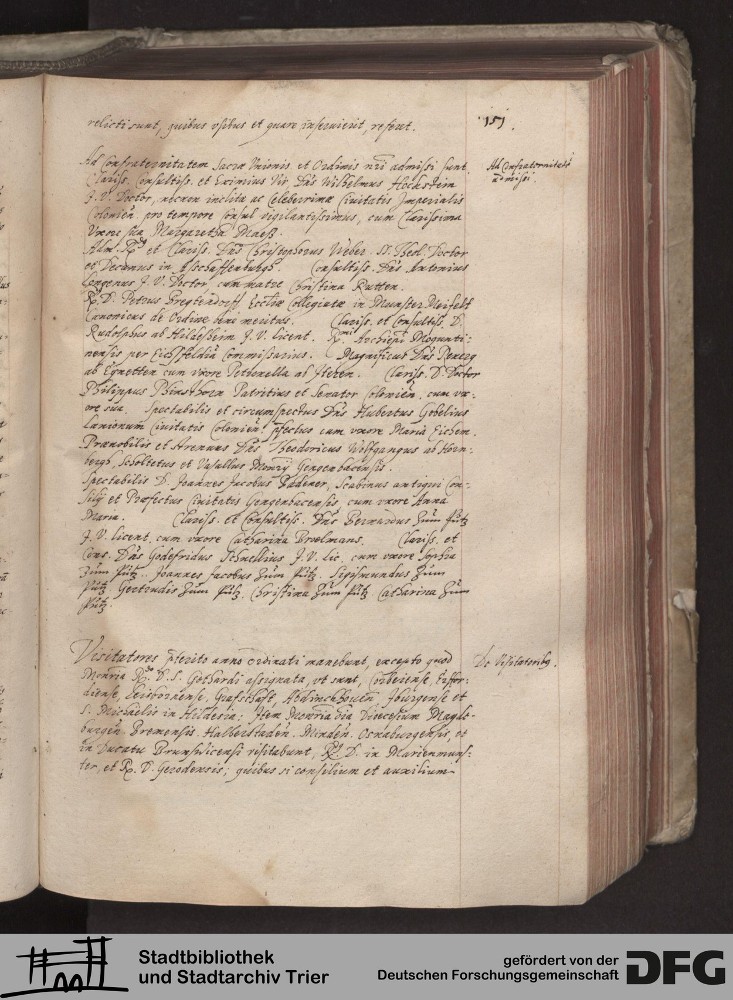 relicti sunt, quibus usibus et quare inservierit, referet.
151.
Ad Confraternitatem Sacræ Unionis et Ordinis nri admissi sunt
Ad Confraternitatē
admissi.
Clariss. Consultiss. et Eximius Vir Dns Wilhelmus Hochstein
J. V. Doctor, necnon inclitæ ac Celeberrimæ Civitatis Imperialis
Colonien. pro tempore Consul vigilantissimus, cum Clarissima
Uxore sua Margaretha
Adm. Rd et Clariss. Dns Christophorus Weber SS. Theol. Doctor
et Decanus in Asschaffenburgh. Consultiss. Dns Antonius
J. V. Doctor cum matre Christina Rutten.
R. D. Petrus Ecclæ Collegiatæ in Munster Meifelt
Canonicus de Ordine bene meritus. Clariss. et Consultiss. D.
Rudolphus ab Hildesheim J. V. licent. Rmi Archiepi Mogunti-
nensis per Eichsfeldiā Commissarius. Magnificus Dns
ab cum uxore Petronella ab Clariss. D. Doctor
Philippus Patritius et Senator Colonien. cum ux-
ore sua. Spectabilis et circumspectus Dns Hubertus Gobelius
Lanionum Civitatis Colonien. pfectus cum uxore Maria Eichem.
Prænobilis et Strenuus Dns Theodoricus Wolfgangus ab Horn-
bergh, Scholtetus et Vasallus Monrij Gengenbacensis.
Spectabilis D. Joannes Jacobus Baderer, Scabinus antiqui Con-
silij et Præfectus Civitatis Gengenbacensis cum uxore Anna
Maria. Clariss. et Consultiss. Dns Bernardus Zum Pütz
J. V. licent. cum uxore Catharina Broelmans. Clariss. et
Cons. Dns Godefridus Schnellius J. V. Lic. cum uxore Sophia
Zum Pütz. Joannes Jacobus Zum Pütz. Sigismundus Zum
Pütz Gertrudis Zum Pütz, Christina Zum Pütz Catharina Zum
Pütz.
Visitatores pterito anno ordinati manebunt, excepto quod
De Visitatoribq.
Monria Rdo D. S. Gothardi assignata, ut sunt, Corbeiense,
Grafschaft, Abdinckhouen Iburgense et
S. Michaelis in Hildesia; Item Monria dia Diœcesium Magde-
burgen. Bremensis. Halberstaden. Minden. Osnaburgensis, et
in Ducatu Brunsvicensi visitabunt, R. D. in Marienmuns-
ter, et R. D. Gerodensis; quibus si consilium et auxilium
Stadtbibliothek
und Stadtarchiv Trier
gefördert von der
Deutschen Forschungsgemeinschaft
DFG